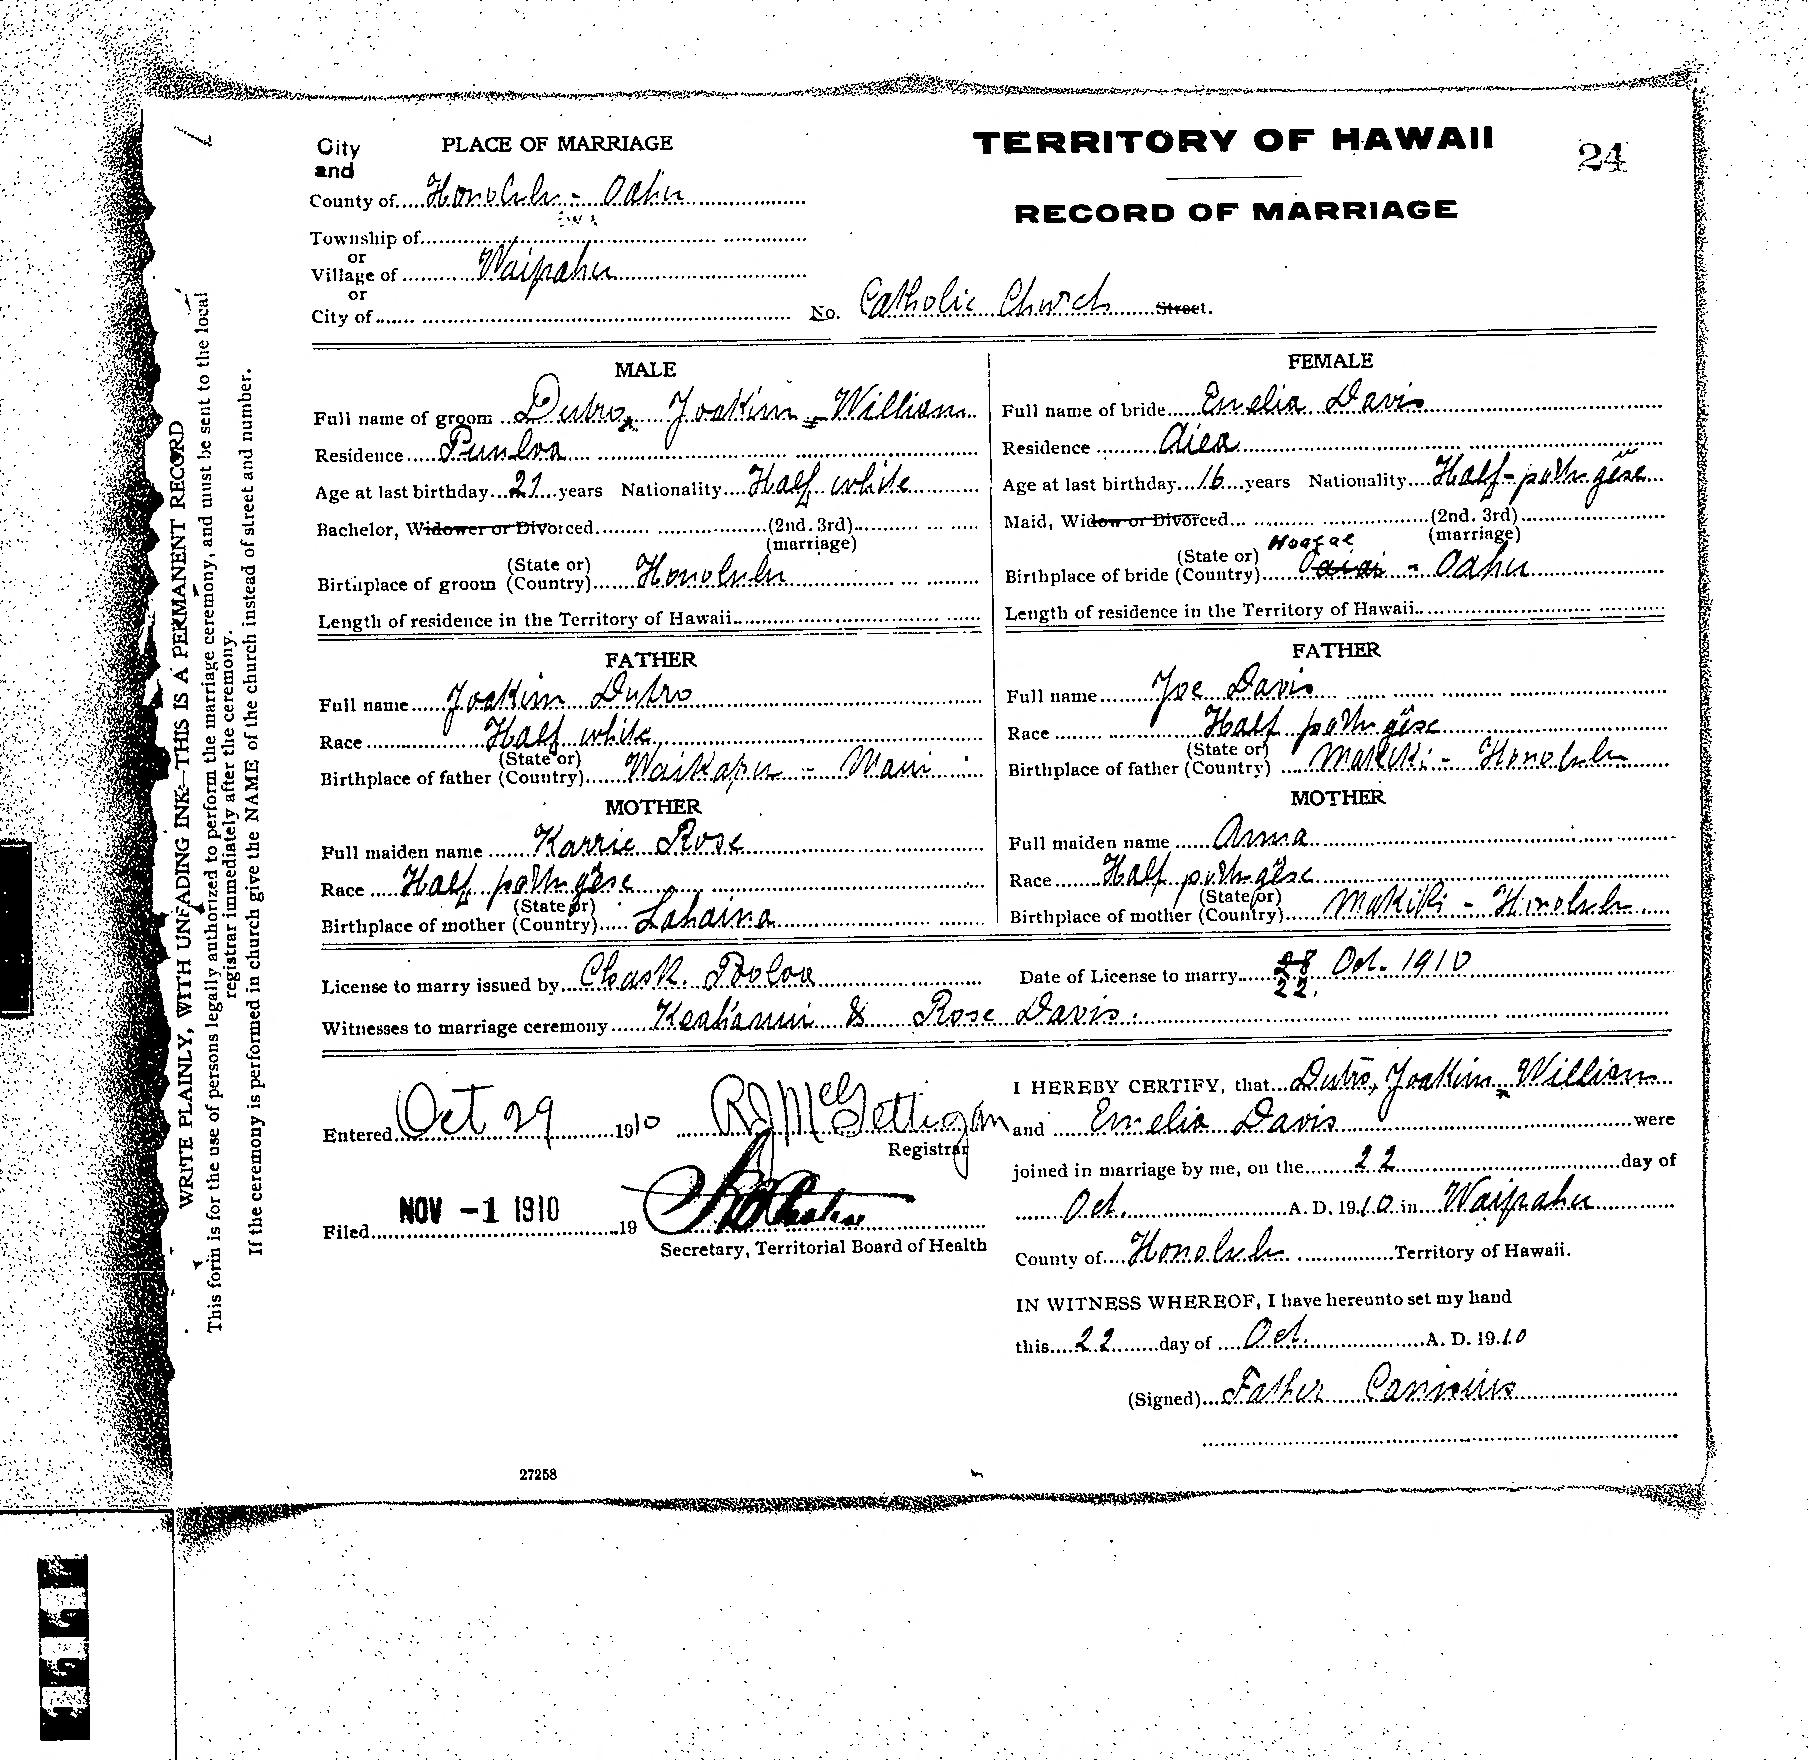 24
TERRITORY OF HAWAII
RECORD OF MARRIAGE
PLACE OF MARRIAGE
City
and
County of Honolulu - Oahu
Ewa
Township of
or
Village of Waipahu
or
City of
No. Catholic Church Street.
MALE
Full name of groom Dutro, Joakim - William
Residence Punloa
Age at last birthday 21 years Nationality Half white
Bachelor, Widower or Divorced (2nd. 3rd)
(marriage)
(State or)
Birthplace of groom (Country) Honolulu
Length of residence in the Territory of Hawaii
FATHER
Full name Joakim Dutro
Race Half white
(State or)
Birthplace of father (Country) Waikapu - Maui
MOTHER
Full maiden name Karrie Rose
Race Half pothugese
(State or)
Birthplace of mother (Country) Lahaina
FEMALE
Full name of bride Emelia Davis
Residence Aiea
Age at last birthday 16 years Nationality Half-pothugese
Maid, Widow or Divorced (2nd. 3rd)
(marriage)
Hoaeae
(State or)
Birthplace of bride (Country) - Oahu
Length of residence in the Territory of Hawaii
FATHER
Full name Joe Davis
Race Half pothugese
(State or)
Birthplace of father (Country) Makiki - Honolulu
MOTHER
Full maiden name Anna
Race Half pothugese
(State or)
Birthplace of mother (Country) Makiki - Honolulu
License to marry issued by Chas K. Pooloa Date of License to marry 28 Oct. 1910
22.
Witnesses to marriage ceremony & Rose Davis.
Entered Oct 29 1910 R J McGettigan
Registrar
Filed NOV -1 1910 19
Secretary, Territorial Board of Health
I HEREBY CERTIFY, that Dutro, Joakim - William
and Emelia Davis were
joined in marriage by me, on the 22 day of
Oct. A. D. 1910 in Waipahu
County of Honolulu Territory of Hawaii.
IN WITNESS WHEREOF, I have hereunto set my hand
this 22 day of Oct. A. D. 1910
(Signed) Father Canisius
27258
WRITE PLAINLY, WITH UNFADING INK—THIS IS A PERMANENT RECORD
This form is for the use of persons legally authorized to perform the marriage ceremony, and must be sent to the local
registrar immediately after the ceremony.
If the ceremony is performed in church give the NAME of the church instead of street and number.